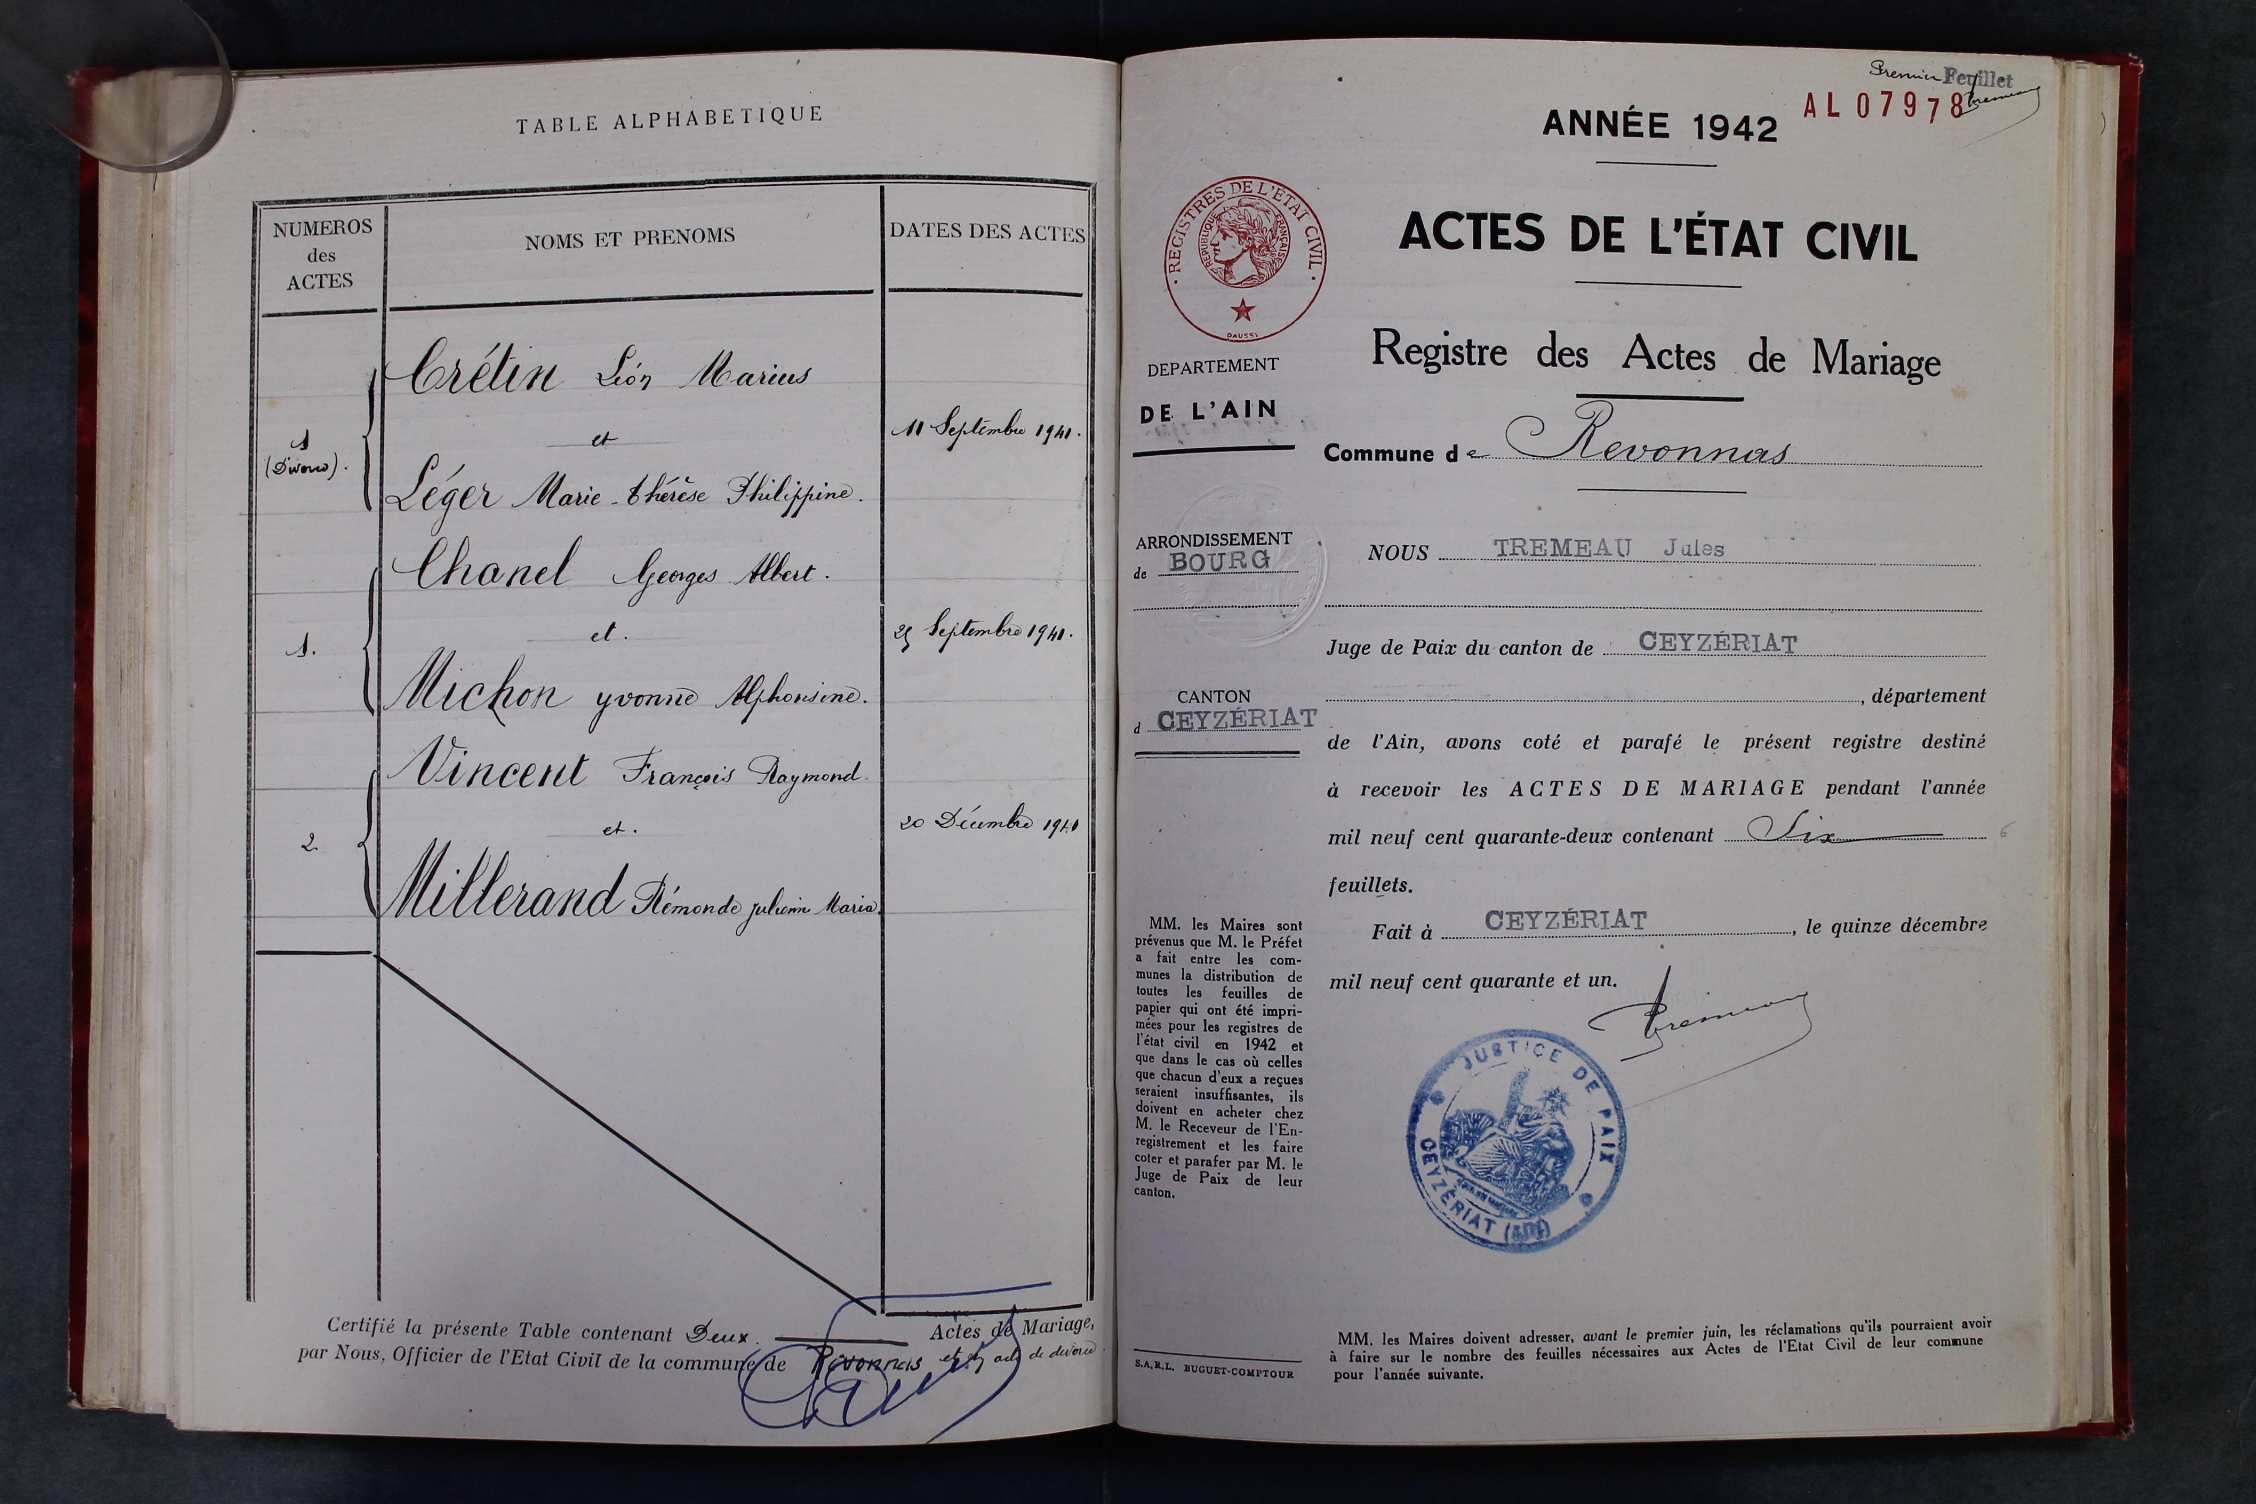 TABLE ALPHABETIQUE
NUMEROS
des
ACTES
NOMS ET PRENOMS
DATES DES ACTES
1
(Divorce).
Crétin Léon Marius
et
Léger Marie-thérèse Philippine.
11 Septembre 1941.
1.
Chanel Georges Albert.
et.
Michon yvonne Alphonsine.
25 Septembre 1941.
2.
Vincent François Raymond.
et.
Millerand Rémonde julienne Maria.
20 Décembre 1941
Certifié la présente Table contenant Deux. Actes de Mariage,
par Nous, Officier de l'Etat Civil de la commune de Revonnas et un acte de divorce
Premier Feuillet
AL 07978
ANNÉE 1942
ACTES DE L'ÉTAT CIVIL
Registre des Actes de Mariage
Commune de Revonnas
NOUS TREMEAU Jules
Juge de Paix du canton de CEYZÉRIAT
, département
de l'Ain, avons coté et parafé le présent registre destiné
à recevoir les ACTES DE MARIAGE pendant l'année
mil neuf cent quarante-deux contenant Six 6
feuillets.
Fait à CEYZÉRIAT, le quinze décembre
mil neuf cent quarante et un.
Tremeau
JUSTICE DE PAIX
CEYZÉRIAT (AIN)
MM. les Maires doivent adresser, avant le premier juin, les réclamations qu'ils pourraient avoir
à faire sur le nombre des feuilles nécessaires aux Actes de l'Etat Civil de leur commune
pour l'année suivante.
REGISTRES DE L'ÉTAT CIVIL
RÉPUBLIQUE FRANÇAISE
DAUSSI
DEPARTEMENT
DE L'AIN
ARRONDISSEMENT
de BOURG
CANTON
d CEYZÉRIAT
MM. les Maires sont
prévenus que M. le Préfet
a fait entre les com-
munes la distribution de
toutes les feuilles de
papier qui ont été impri-
mées pour les registres de
l'état civil en 1942 et
que dans le cas où celles
que chacun d'eux a reçues
seraient insuffisantes, ils
doivent en acheter chez
M. le Receveur de l'En-
registrement et les faire
coter et parafer par M. le
Juge de Paix de leur
canton.
S.A.R.L. BUGUET-COMPTOUR